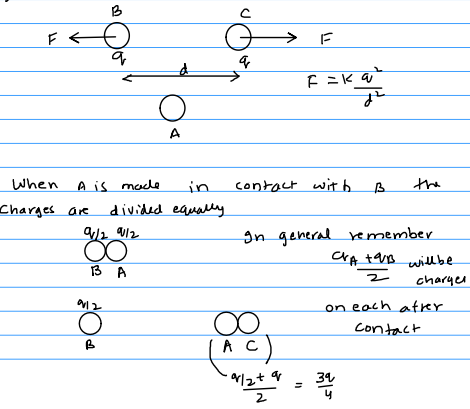 B C
F F
q q
d
F = K q²/d²
A
When A is made in contact with B the
charges are divided equally
q/2 q/2
B A
In general remember
(qA + qB)/2 will be
charges
on each after
contact
q/2
B
A C
(q/2 + q)/2 = 3q/4